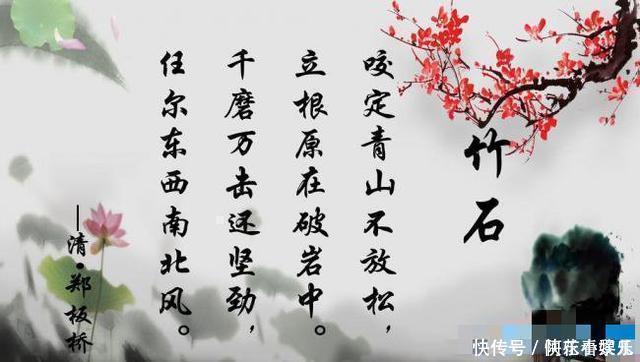 竹石
咬定青山不放松，
立根原在破岩中。
千磨万击还坚劲，
任尔东西南北风。
—清•郑板桥
快传号／